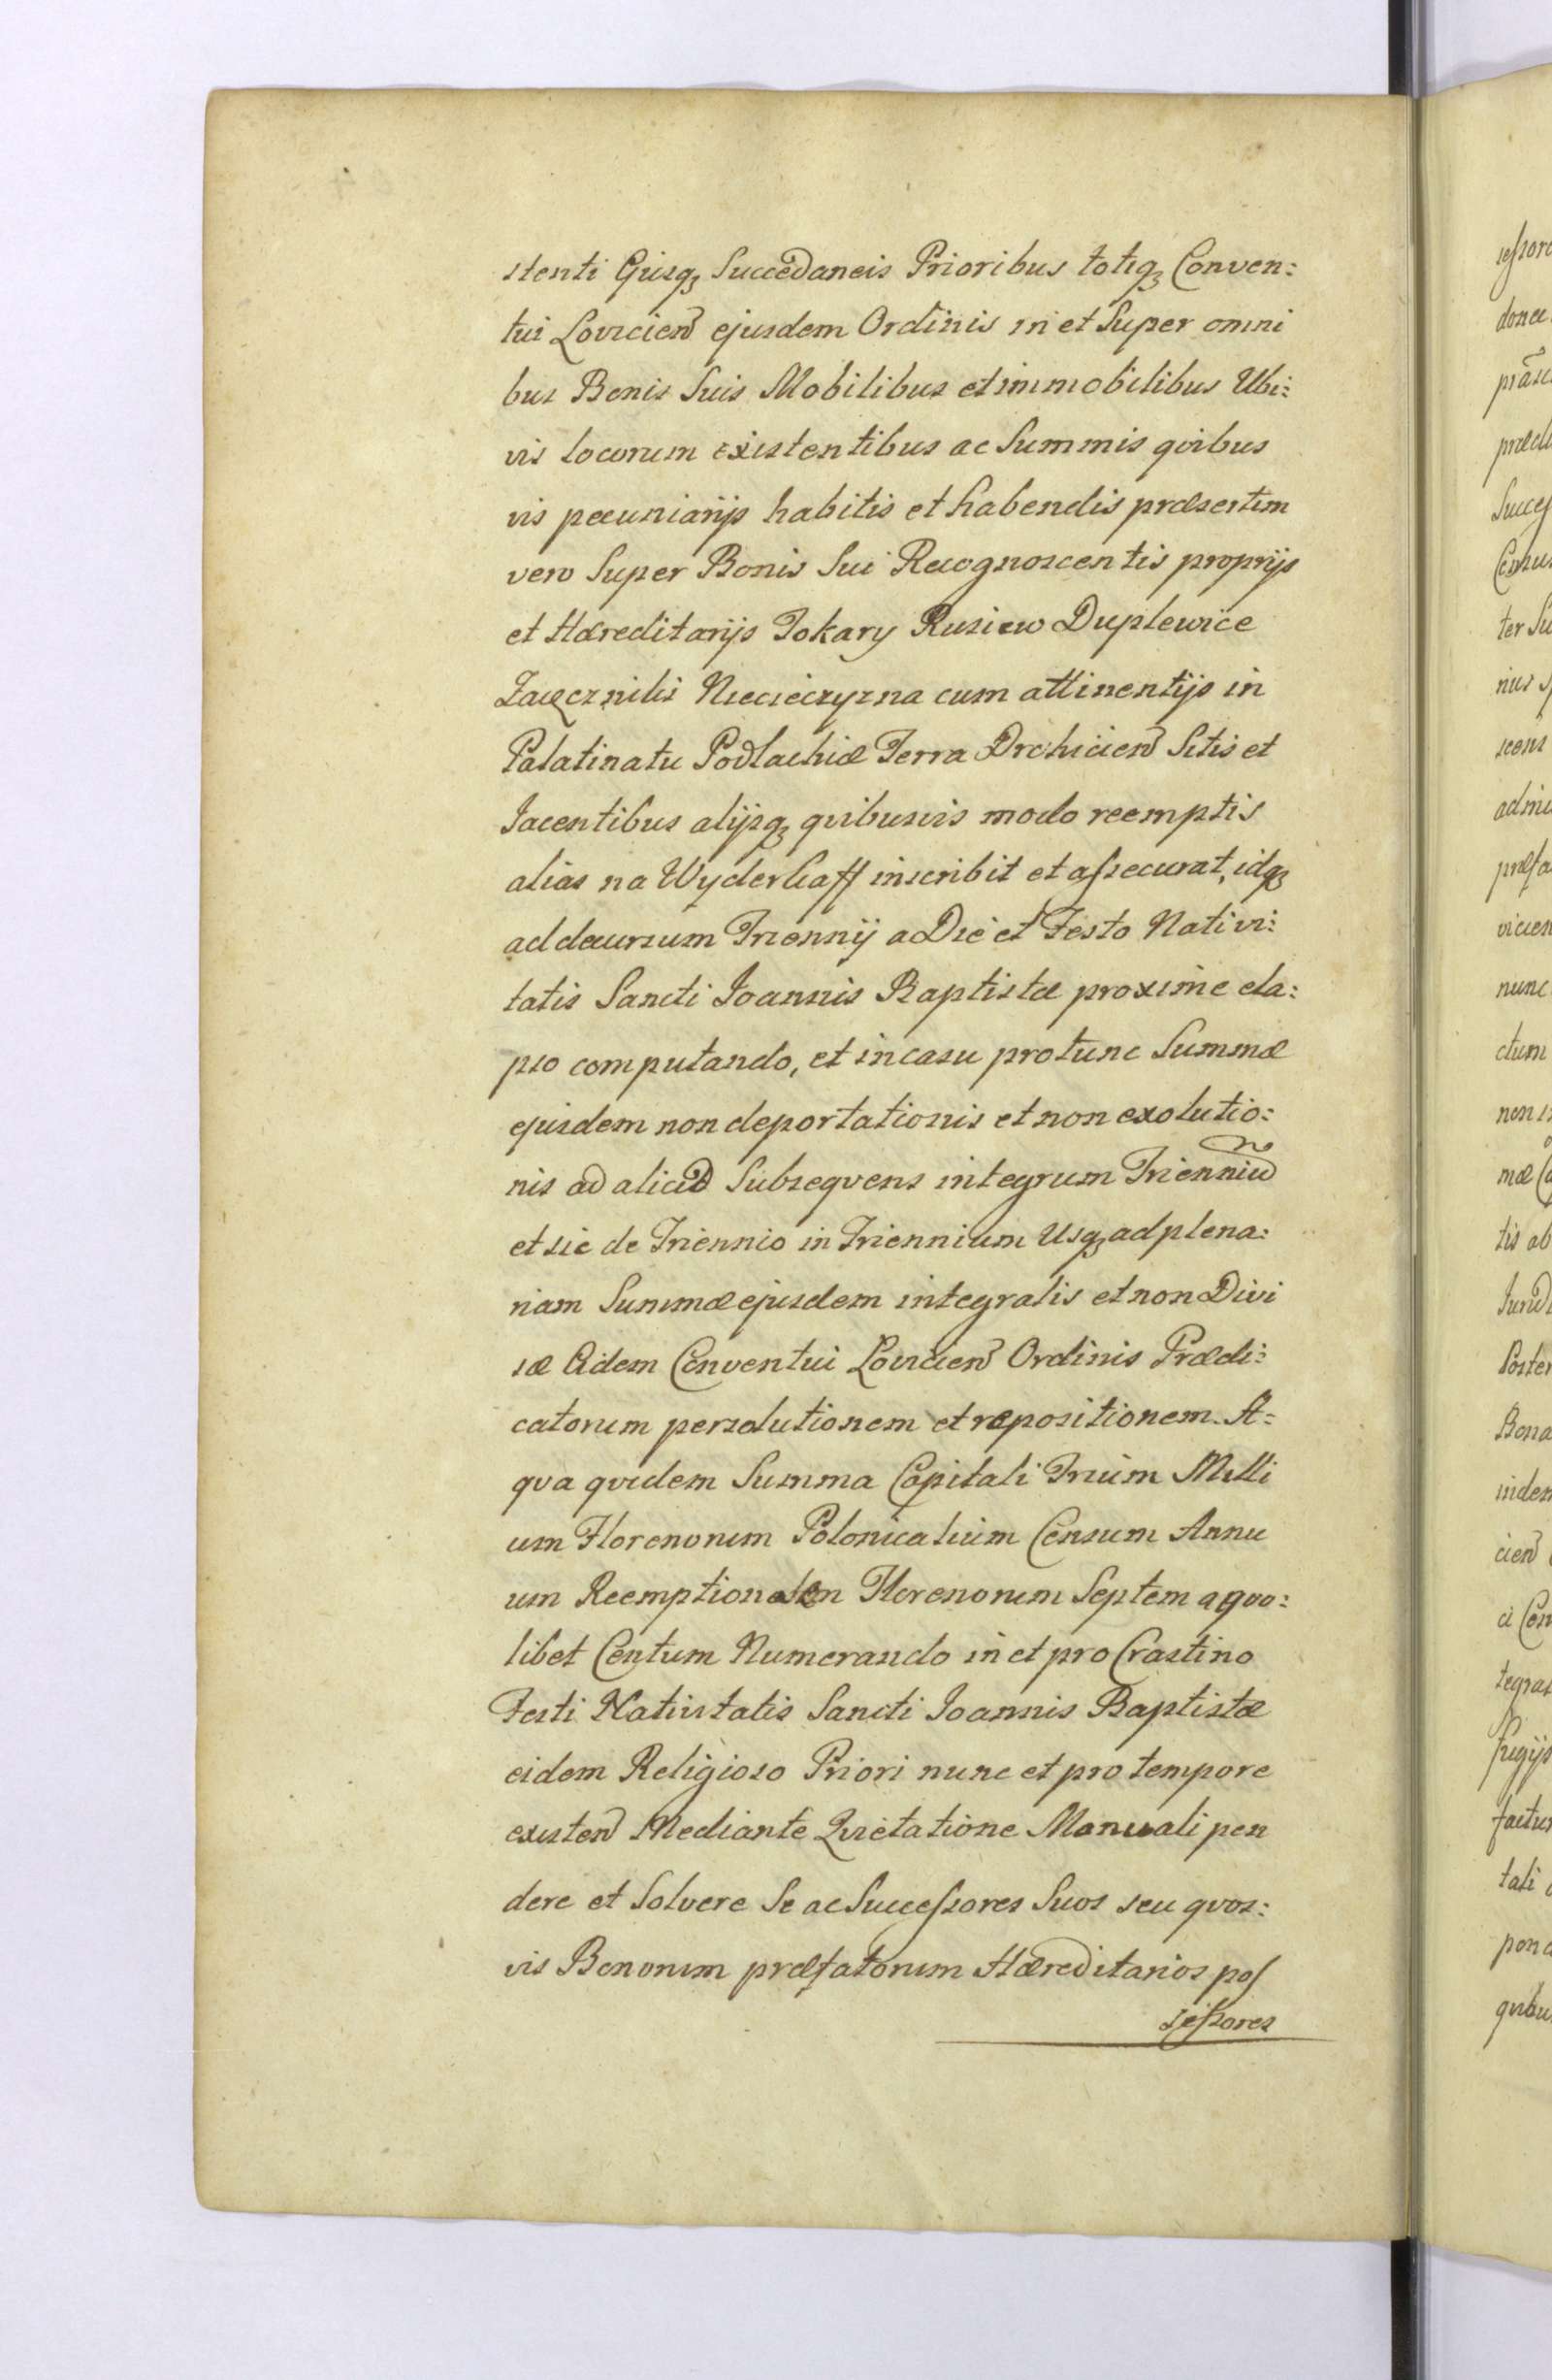 stenti Ejusq₃ Succedaneis Prioribus totiq₃ Conven:
tui Loviciен̃ ejusdem Ordinis in et Super omni
bus Bonis Suis Mobilibus et immobilibus Ubi:
vis locorum existentibus ac Summis qvibus
vis pecuniarijs habitis et habendis præsertim
vero Super Bonis Sui Recognoscentis proprijs
et Hæreditarijs Tokary Rusiew Duplewice
Niecieczyzna cum attinentijs in
Palatinatu Podlachiæ Terra Drohicien̄ Sitis et
Jacentibus alijsq₃ qvibusvis modo reemptis
alias na Wyderkaff inscribit et assecurat, idq₃
ad decursum Triennij a Die et Festo Nativi:
tatis Sancti Joannis Baptistæ proxime ela:
pso computando, et in casu pro tunc Summæ
ejusdem non deportationis et non exolutio:
nis ad aliud Subseqvens integrum Trienniũ
et sic de Triennio in Triennium Usq₃ ad plena:
riam Summæ ejusdem integralis et non Divi
sæ Eidem Conventui Lovicien̄ Ordinis Prædi:
catorum persolutionem et repositionem. A:
qva qvidem Summa Capitali Trium Milli
um Florenorum Polonicalium Censum Annu
um Reemptionalem Florenorum Septem a qvo:
libet Centum Numerando in et pro Crastino
Festi Nativitatis Sancti Joannis Baptistæ
eidem Religioso Priori nunc et pro tempore
existen̄ Mediante Qvietatione Manuali pen
dere et Solvere Se ac Successores Suos seu qvos:
vis Bonorum præfatorum Hæreditarios pos
sessores